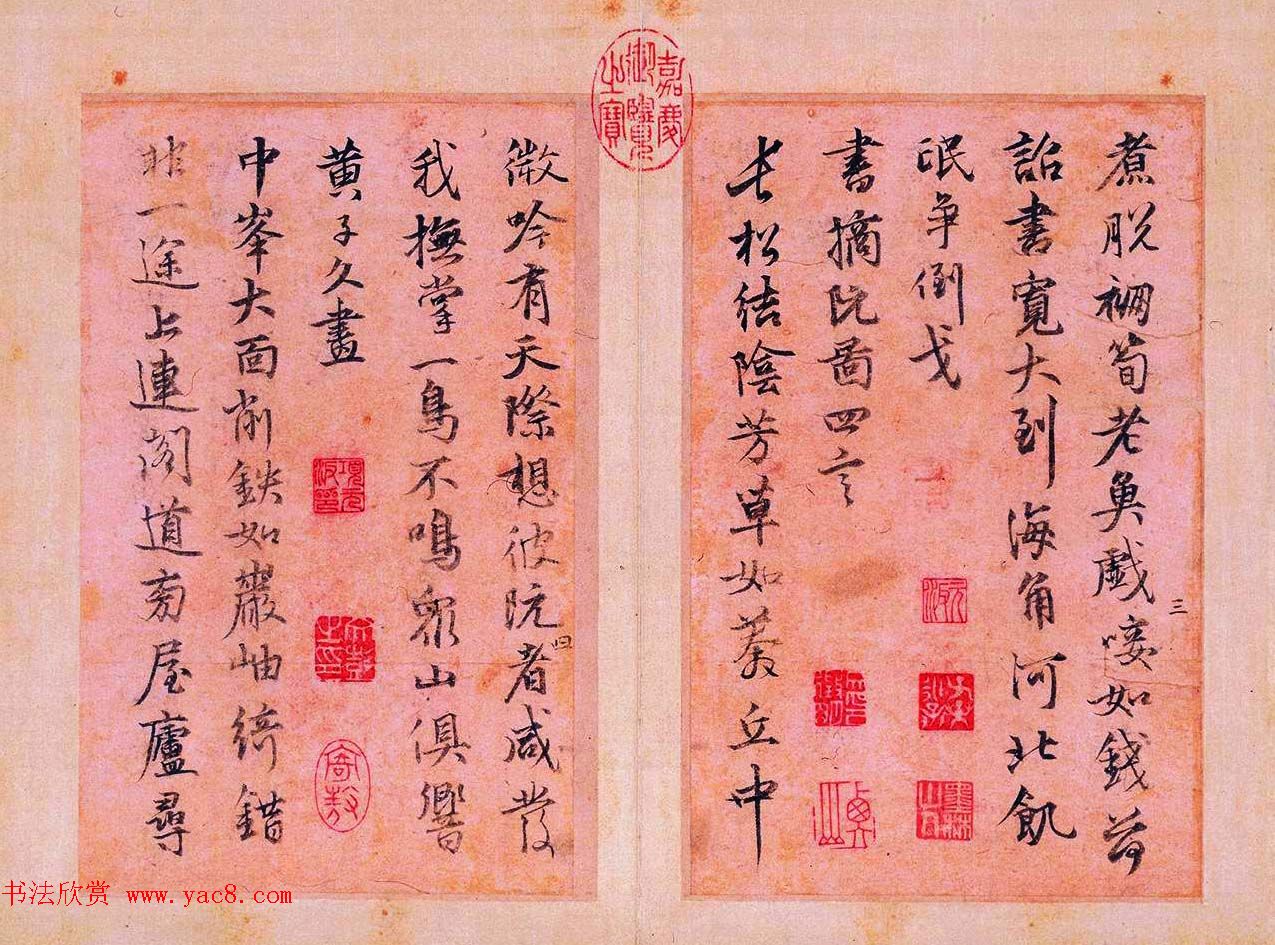 煮脫襧筍老魚戲唼如錢荷
詔書寬大到海角河北飢
氓爭倒戈
書摘阮圖四言
長松結陰芳草如綦丘中
三
嘉慶
御覽
之寶
微吟有天際想彼阮者咸發
我撫掌一鳥不鳴衆山俱響
黄子久畫
中峯大面削鉄如巖岫綺錯
非一途上連閣道旁屋廬尋
四
項元
汴印
子京
墨林
山人
書法欣赏 www.yac8.com